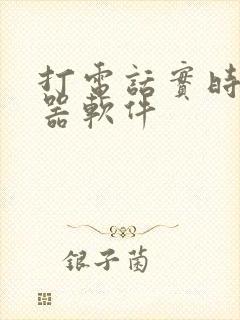 打電話實時
器軟件
銀子菌